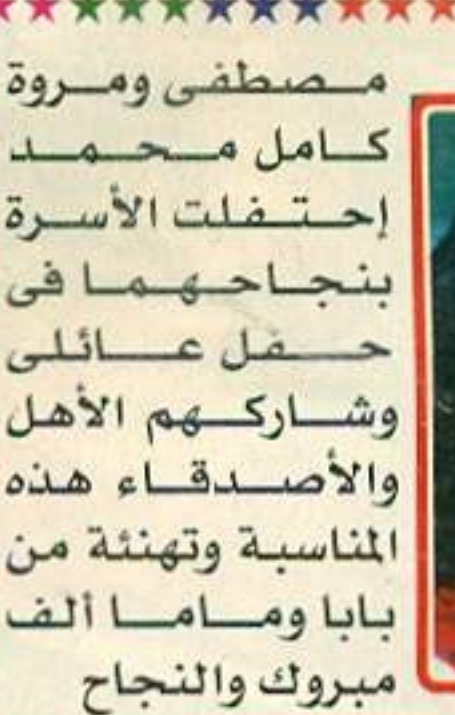 مصطفى ومروة
كامل محمد
إحتفلت الأسرة
بنجاحهما فى
حفل عائلى
وشاركهم الأهل
والأصدقاء هذه
المناسبة وتهنئة من
بابا وماما ألف
مبروك والنجاح